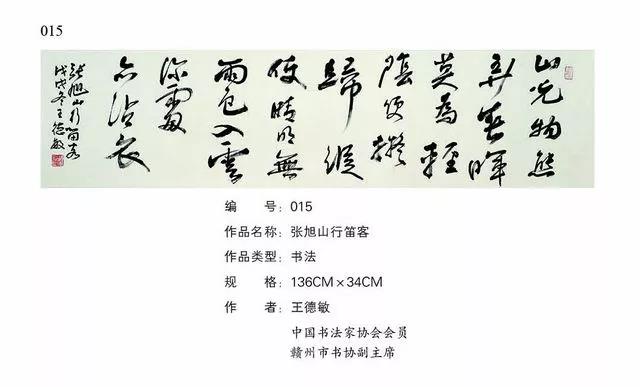 015
山光物態
弄春暉
莫為輕
陰便擬
歸縱
使晴明無
雨色入雲
深處
亦沾衣
張旭山行留客
戊戌冬王德敏
编 号：015
作品名称：张旭山行笛客
作品类型：书法
规 格：136CM×34CM
作 者：王德敏
中国书法家协会会员
赣州市书协副主席